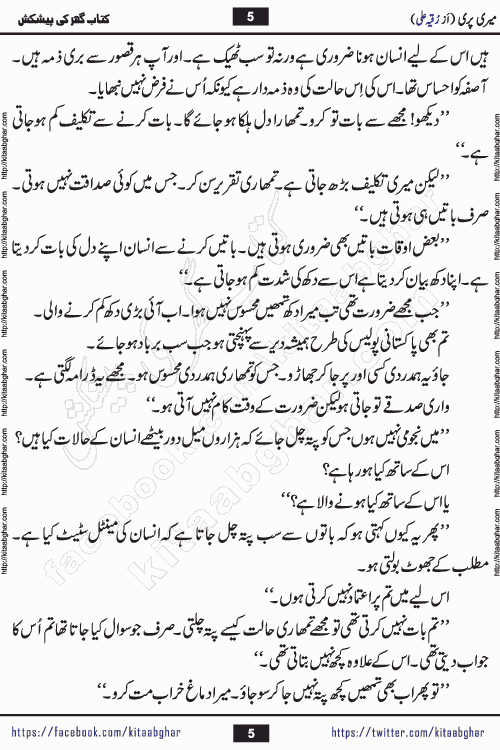 میری پری (از رُقیہ علی)
5
کتاب گھر کی پیشکش
ہیں اس کے لیے انسان ہونا ضروری ہے ورنہ تو سب ٹھیک ہے۔ اور آپ ہر قصور سے بری ذمہ ہیں۔
آصفہ کو احساس تھا۔ اس کی اِس حالت کی وہ ذمہ دار ہے کیونکہ اُس نے فرض نہیں نبھایا۔
’’دیکھو! مجھے سے بات تو کرو۔ تمھارا دل ہلکا ہو جائے گا۔ بات کرنے سے تکلیف کم ہو جاتی
ہے۔‘‘
’’لیکن میری تکلیف بڑھ جاتی ہے۔ تمھاری تقریر سن کر۔ جس میں کوئی صداقت نہیں ہوتی۔
صرف باتیں ہی ہوتی ہیں۔‘‘
’’بعض اوقات باتیں بھی ضروری ہوتی ہیں۔ باتیں کرنے سے انسان اپنے دل کی بات کر دیتا
ہے۔ اپنا دکھ بیان کر دیتا ہے اس سے دکھ کی شدت کم ہو جاتی ہے۔‘‘
’’جب مجھے ضرورت تھی تب میرا دکھ تمھیں محسوس نہیں ہوا۔ اب آئی بڑی دکھ کم کرنے والی۔
تم بھی پاکستانی پولیس کی طرح ہمیشہ دیر سے پہنچتی ہو جب سب برباد ہو جائے۔
جاؤ یہ ہمدردی کسی اور پر جا کر جھاڑو۔ جس کو تمھاری ہمدردی محسوس ہو۔ مجھے یہ ڈرامہ لگتی ہے۔
واری صدقے تو جاتی ہو لیکن ضرورت کے وقت کام نہیں آتی ہو۔‘‘
’’میں نجومی نہیں ہوں جس کو پتہ چل جائے کہ ہزاروں میل دور بیٹھے انسان کے حالات کیا ہیں؟
اس کے ساتھ کیا ہو رہا ہے؟
یا اس کے ساتھ کیا ہونے والا ہے؟‘‘
’’پھر یہ کیوں کہتی ہو کہ باتوں سے سب پتہ چل جاتا ہے کہ انسان کی مینٹل سٹیٹ کیا ہے۔
مطلب کے جھوٹ بولتی ہو۔
اس لیے میں تم پر اعتماد نہیں کرتی ہوں۔‘‘
’’تم بات نہیں کرتی تھی تو مجھے تمھاری حالت کیسے پتہ چلتی۔ صرف جو سوال کیا جاتا تھا تم اُس کا
جواب دیتی تھی۔ اس کے علاوہ کچھ نہیں بتاتی تھی۔‘‘
’’تو پھر اب بھی تمھیں کچھ پتہ نہیں جا کر سو جاؤ۔ میرا دماغ خراب مت کرو۔‘‘
http://kitaabghar.com
http://kitaabghar.com
http://kitaabghar.com
http://kitaabghar.com
http://kitaabghar.com
http://kitaabghar.com
http://kitaabghar.com
http://kitaabghar.com
http://kitaabghar.com
http://kitaabghar.com
http://kitaabghar.com
http://kitaabghar.com
کتاب گھر کی پیشکش
kitaabghar.com
facebook.com/kitaabghar
https://facebook.com/kitaabghar
5
https://twitter.com/kitaabghar